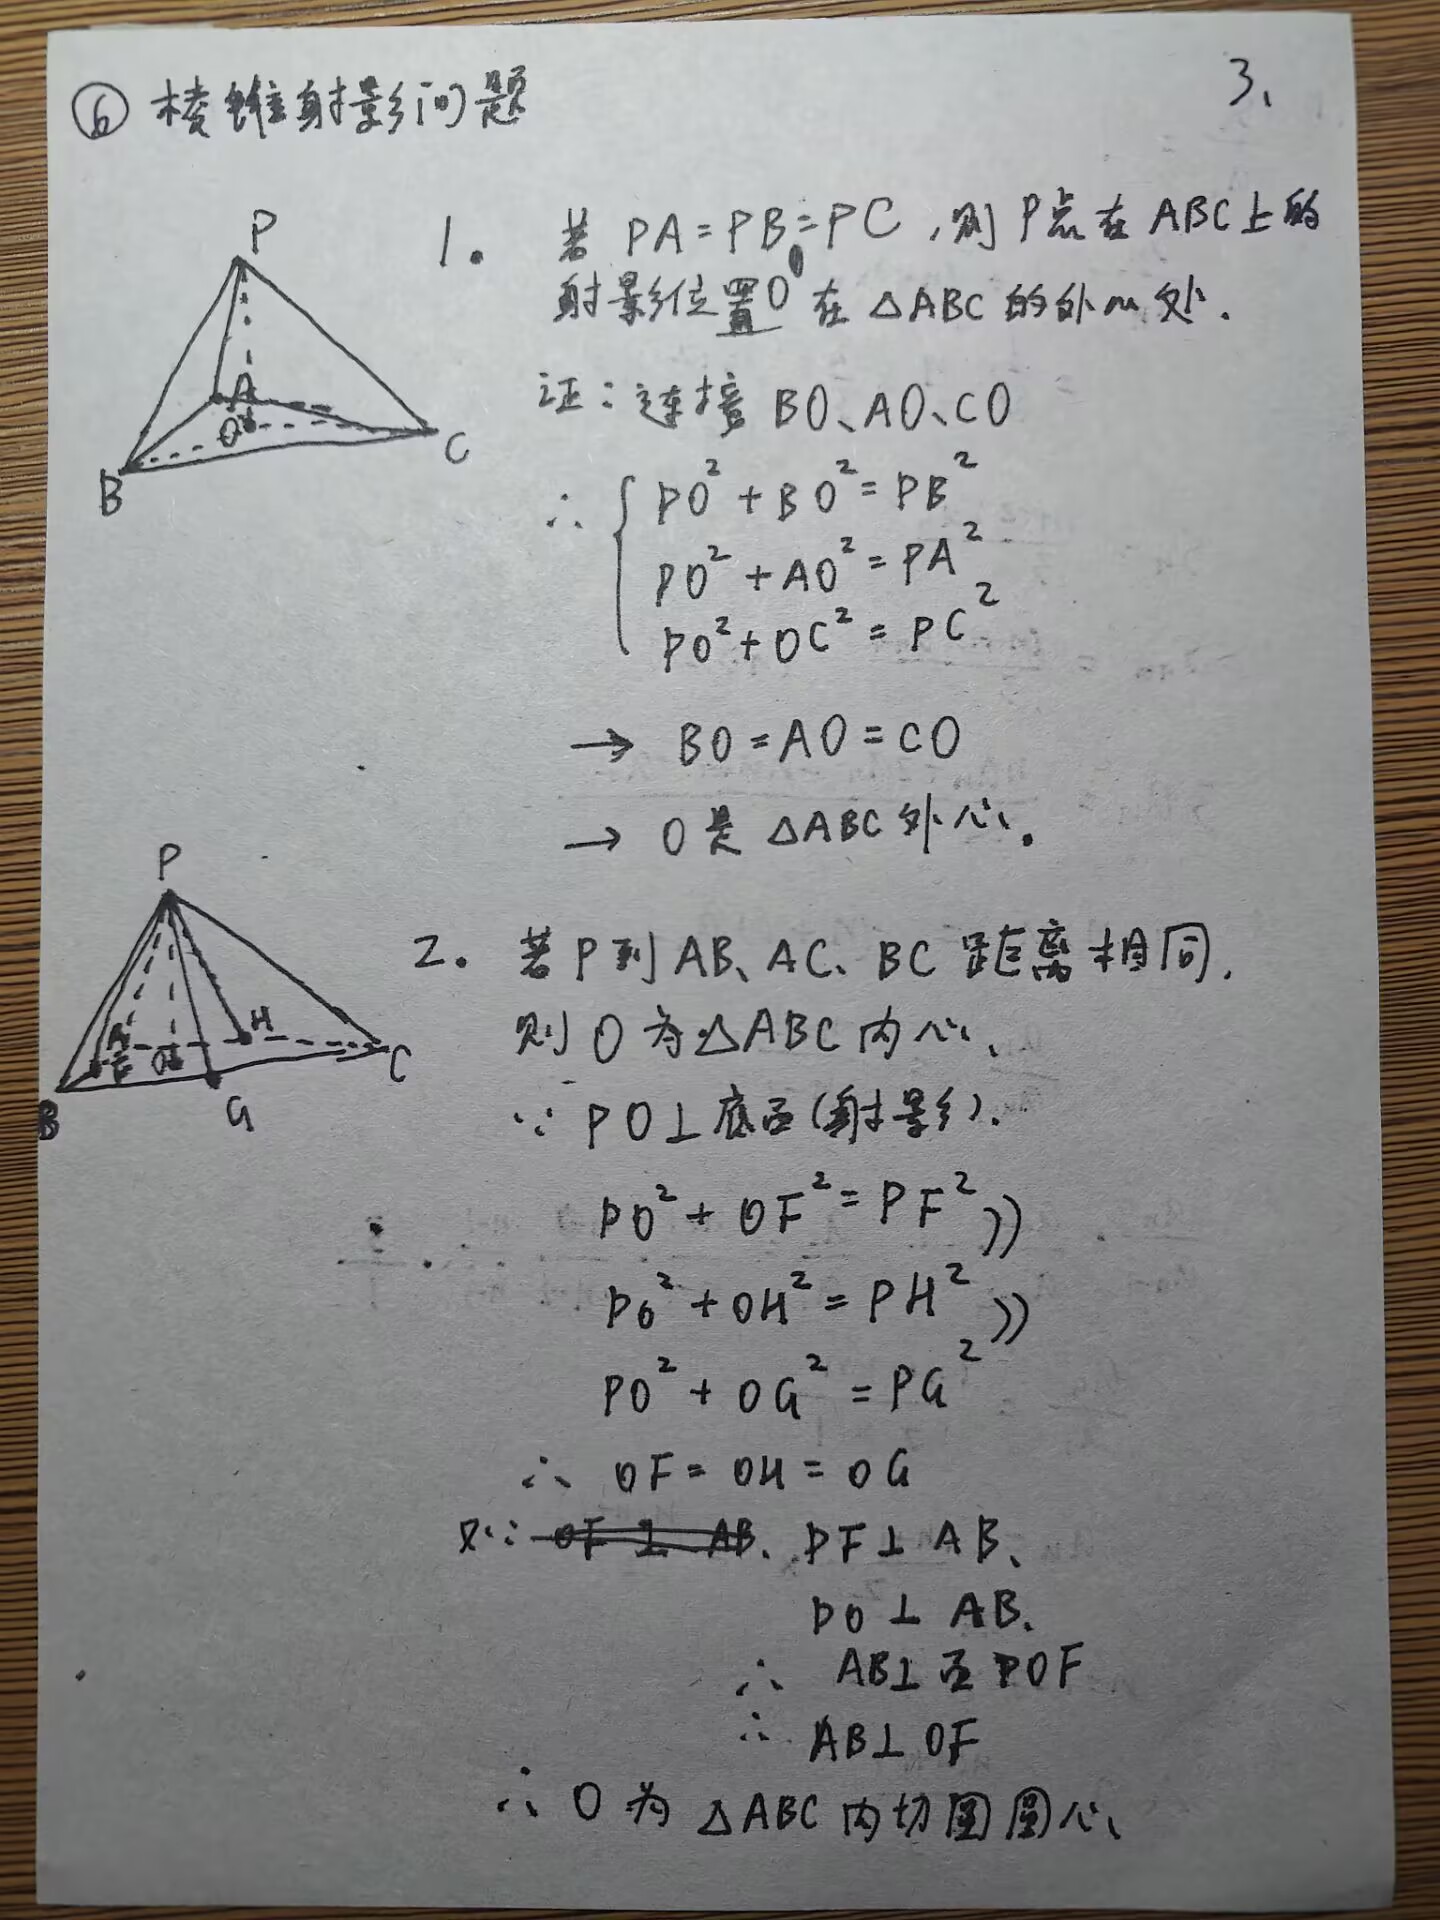 ⑥ 棱锥射影问题
3、
1. 若 PA=PB=PC，则P点在ABC上的
射影位置O在△ABC的外心处.
证：连接 BO、AO、CO
∴ { PO²+BO²=PB²
PO²+AO²=PA²
PO²+OC²=PC²
→ BO=AO=CO
→ O是△ABC外心.
P
A
O
B
C
2. 若P到AB、AC、BC距离相同,
则O为△ABC内心、
∵ PO⊥底面(射影).
PO²+OF²=PF²
PO²+OH²=PH²
PO²+OG²=PG²
∴ OF=OH=OG
又∵ PF⊥AB、
PO⊥AB.
∴ AB⊥面POF
∴ AB⊥OF
∴ O为△ABC内切圆圆心、
P
A
H
F
O
C
B
G